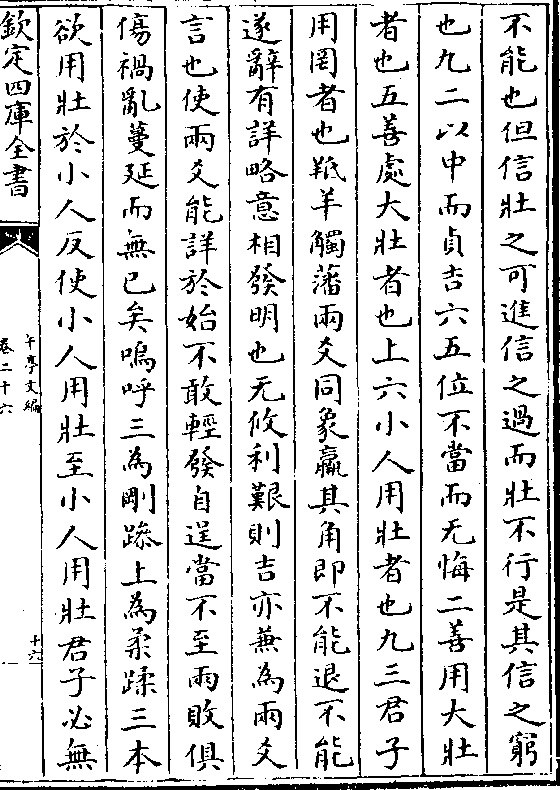 不能也但信壯之可進信之過而壯不行是其信之窮
也九二以中而貞吉六五位不當而无悔二善用大壯
者也五善處大壯者也上六小人用壯者也九三君子
用罔者也羝羊觸藩兩爻同象羸其角即不能退不能
遂辭有詳略意相發明也无攸利艱則吉亦兼為兩爻
言也使兩爻能詳於始不敢輕發自逞當不至兩敗俱
傷禍亂蔓延而無已矣嗚呼三為剛躁上為柔蹂三本
欲用壯於小人反使小人用壯至小人用壯君子必無
欽定四庫全書
午亭文編
卷二十六
十六